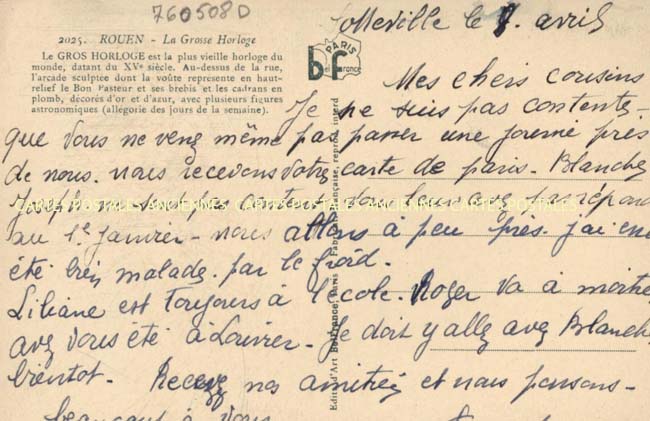 760508D
Sotteville le 8. avril
2025. ROUEN - La Grosse Horloge
Le GROS HORLOGE est la plus vieille horloge du
monde, datant du XVe siècle. Au-dessus de la rue,
l'arcade sculptée dont la voûte représente en haut-
relief le Bon Pasteur et ses brebis et les cadrans en
plomb, décorés d'or et d'azur, avec plusieurs figures
astronomiques (allégorie des jours de la semaine).
PARIS
bf
et France
Mes chers cousins
Je ne suis pas contente
que vous ne venez même pas passer une journée près
de nous. nous recevons votre carte de paris. Blanche
Joseph ne sont pas content vous leur avez pas répond
au 1e Janvier - nous allons à peu près. j'ai
été bien malade. par le froid.
Liliane est toujours à l'école. Roger va a
avez vous été à Louvier. Je doit y allez avez Blanche
bientot. Recevez nos amitiés et nous pensons
beaucoup à vous
CARTES POSTALES ANCIENNES CARTES POSTALES ANCIENNES CARTES POSTALES
Edition d'Art Belfrance, Paris Fabrication Française, reprod. interd